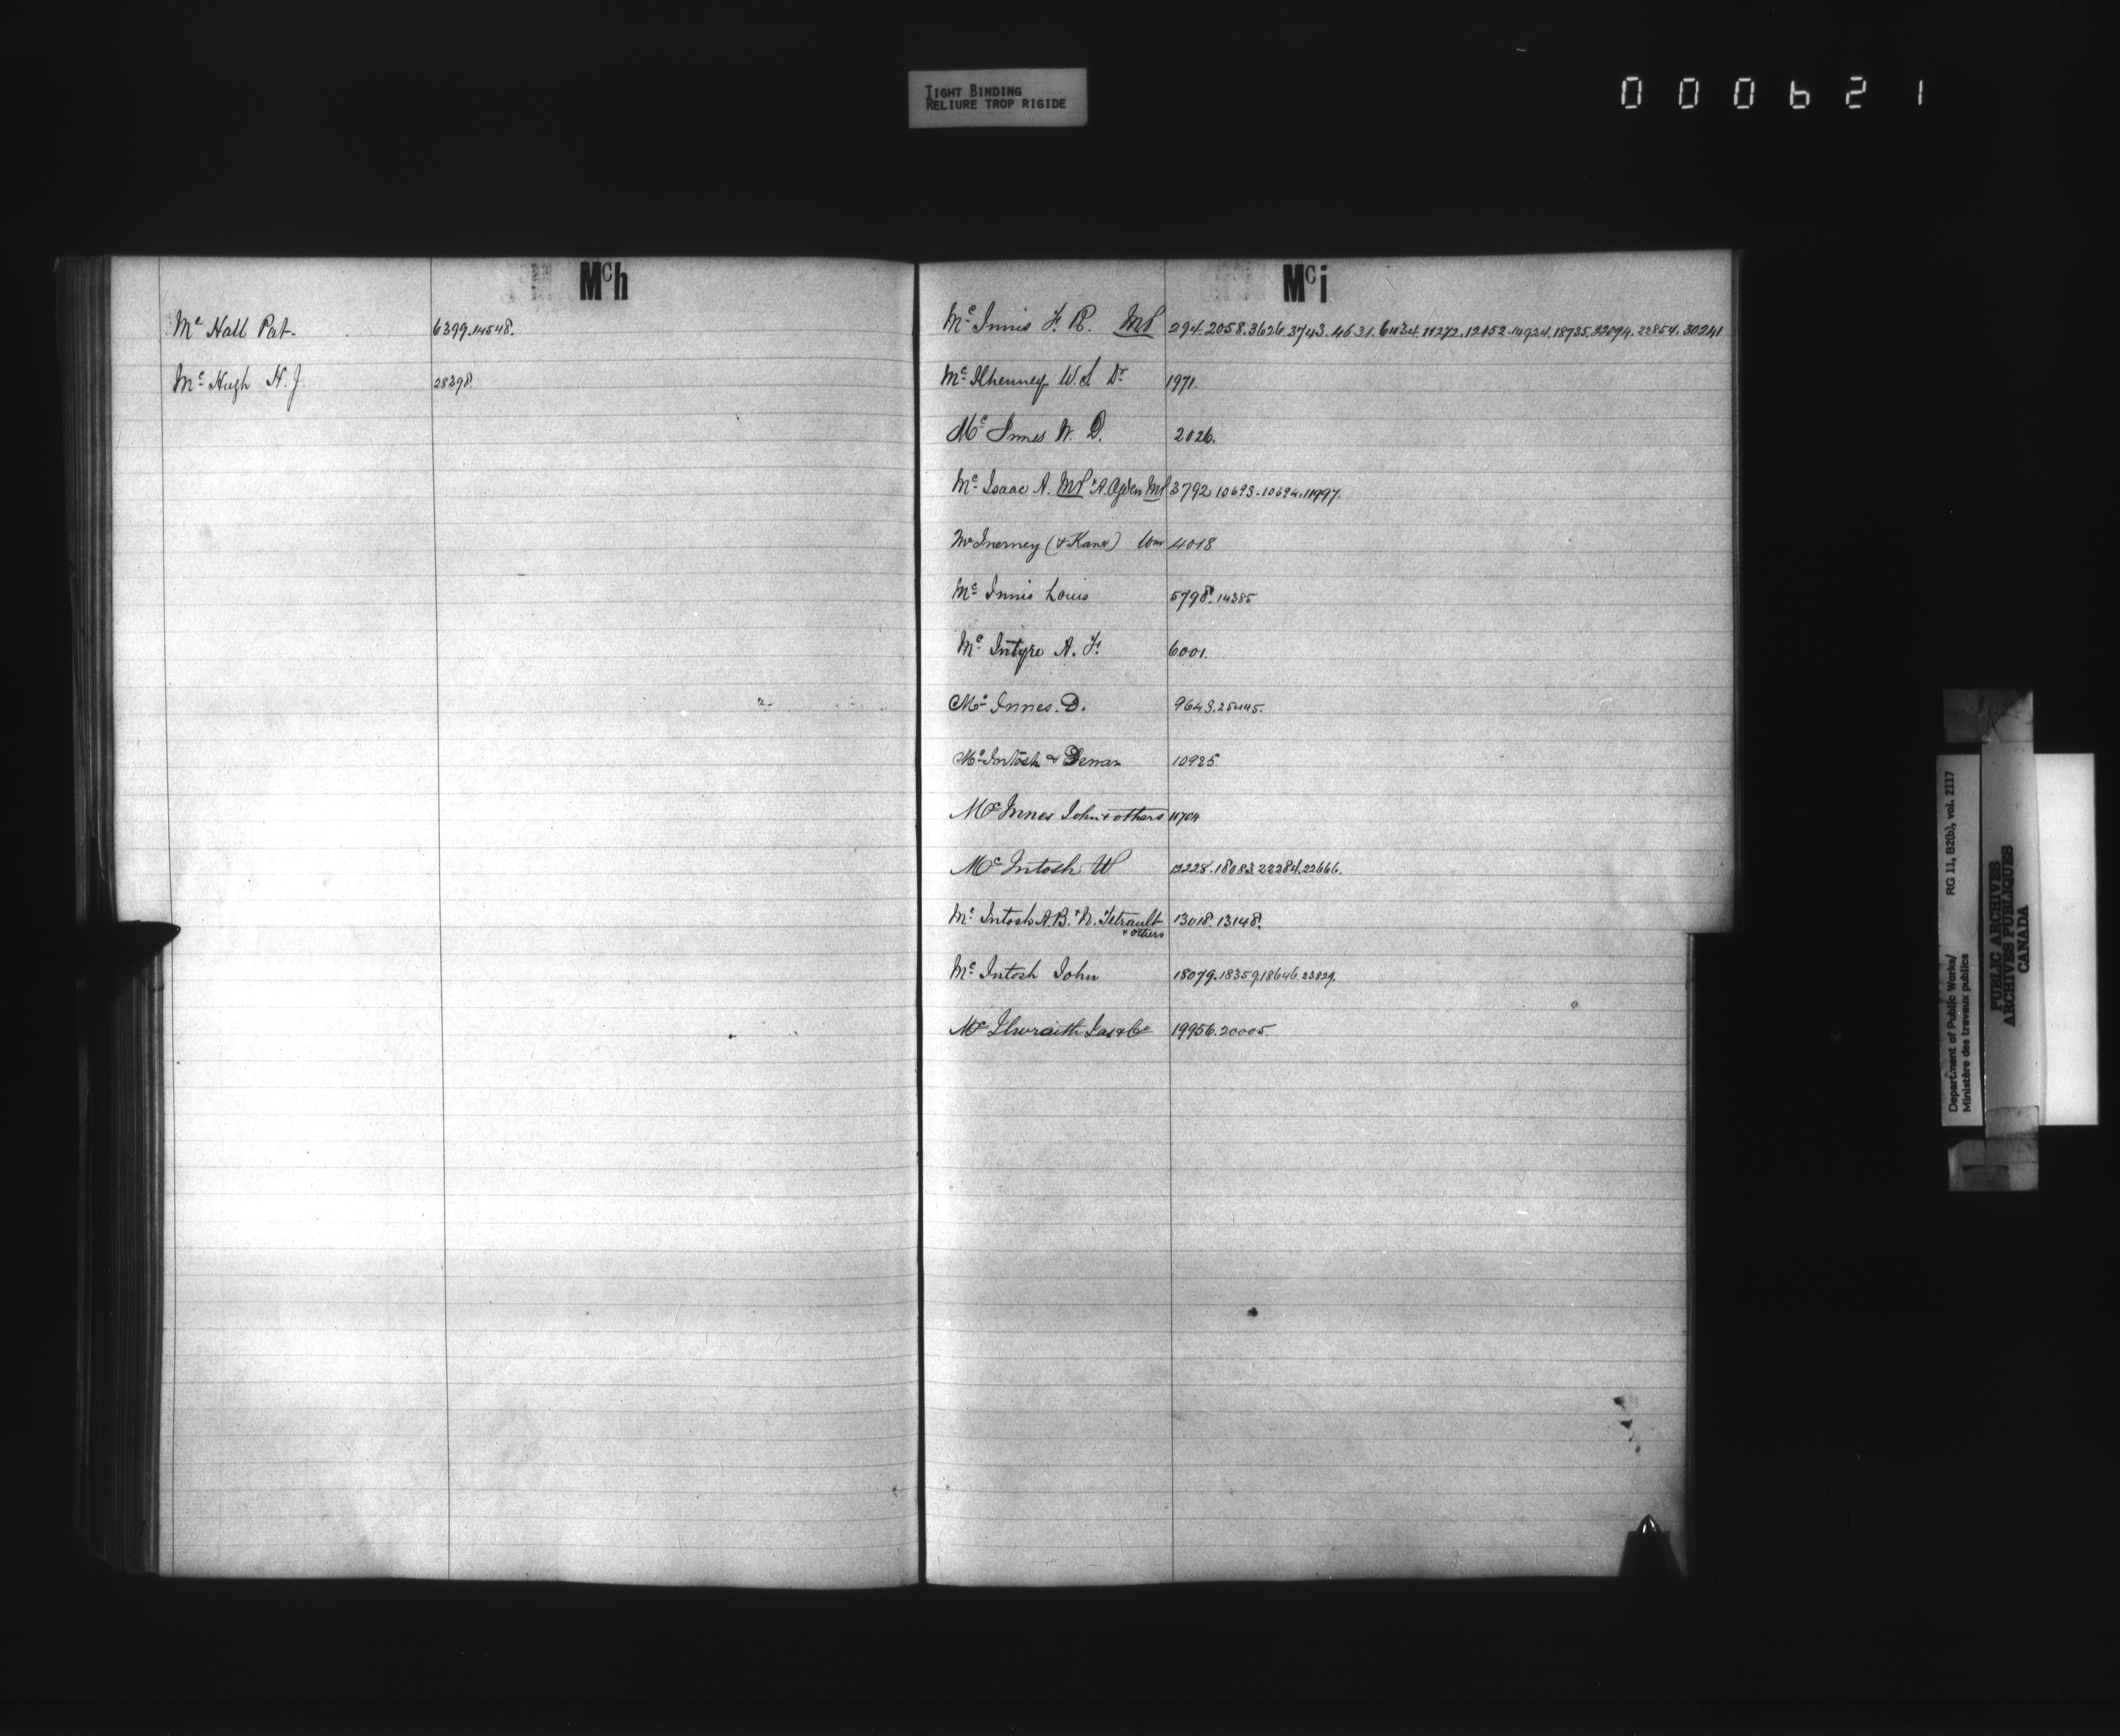 TIGHT BINDING
RELIURE TROP RIGIDE
000621
Mch
Mc Hall Pat. 6399.14548.
Mc Hugh H. J. 28398.
Mci
Mc Innis F. R. MP 294.2058.3626.3743.4631.6434.11272.12152.14924.18735.22094.22854.30241
Mc Ilhenney W. S Dr 1971.
Mc Innes W. D. 2026.
Mc Isaac A. MP & A. Ogden MP 3792 10693.10694.11997.
McInerney (& Kane) Wm 4018
Mc Innis Louis 5798.14385
Mc Intyre A. F. 6001.
Mc Innes. D. 9643.25445.
Mc Intosh & 10925
Mc Innes John & others 11704
Mc Intosh W 12228.18083.22284.22666.
Mc Intosh A.B. & N. Tetrault
& others 13018.13148.
Mc Intosh John 18079.18359.18646.23829.
Mc Ilwraith Jas & Co 19956.20005.
Department of Public Works/ RG 11, B2(b), vol. 2117
Ministère des travaux publics
PUBLIC ARCHIVES
ARCHIVES PUBLIQUES
CANADA